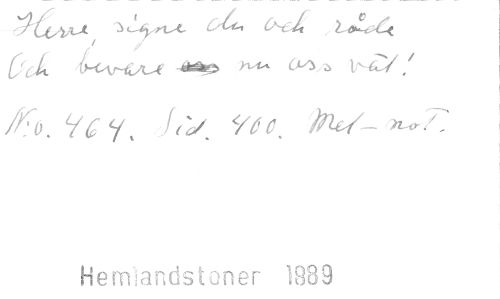 Herre, signe du och råde
Och bevare nu oss väl!
No. 464. Sid. 400. Mel-not.
Hemlandstoner 1889